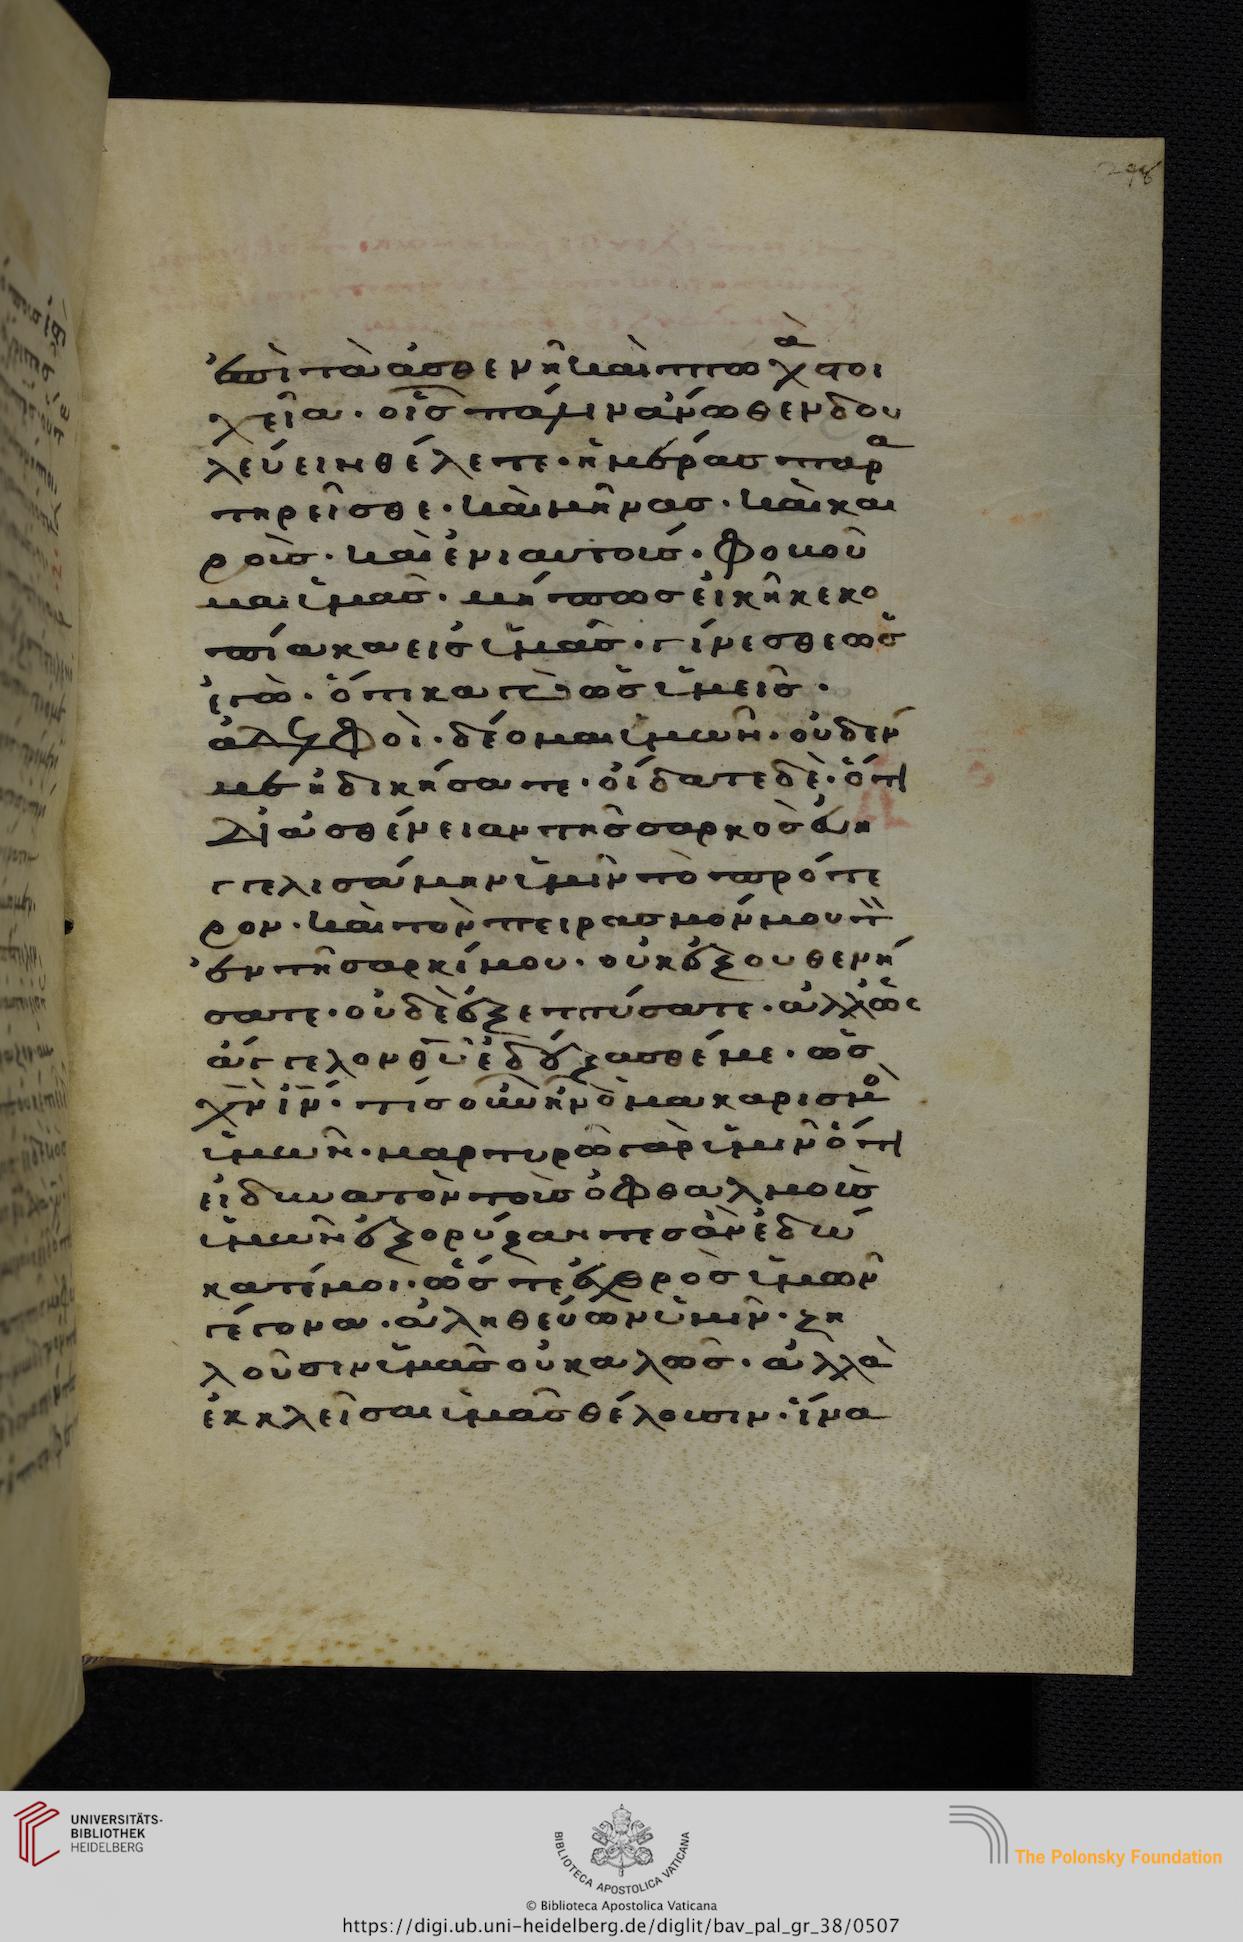 298
ἐπὶ τὰ ἀσθενῆ καὶ πτωχὰ στοι
χεῖα· οἷς πάλιν ἄνωθεν δου
λεύειν θέλετε· ἡμέρας παρα
τηρεῖσθε· καὶ μῆνας· καὶ και
ροὺς· καὶ ἐνιαυτούς· φοβοῦ
μαι ὑμᾶς· μή πως εἰκῆ κεκο
πίακα εἰς ὑμᾶς· γίνεσθε ὡς
ἐγὼ· ὅτι κἀγὼ ὡς ὑμεῖς·
ἀδελφοὶ· δέομαι ὑμῶν· οὐδέν
με ἠδικήσατε· οἴδατε δὲ· ὅτι
δι ἀσθένειαν τῆς σαρκὸς εὐη
γγελισάμην ὑμῖν τὸ πρότε
ρον· καὶ τὸν πειρασμόν μου τὸν
ἐν τῆ σαρκί μου· οὐκ ἐξουθενή
σατε· οὐδὲ ἐξεπτύσατε· ἀλλ ὡς
ἄγγελον θυ ἐδέξασθέ με· ὡς
χν ιν· τίς οὖν ἦν ὁ μακαρισμὸς
ὑμῶν· μαρτυρῶ γὰρ ὑμῖν ὅτι
εἰ δυνατὸν τοὺς ὀφθαλμοὺς
ὑμῶν ἐξορύξαντες ἂν ἐδώ
κατέ μοι· ὥστε ἐχθρὸς ὑμῶν
γέγονα· ἀληθεύων ὑμῖν· ζη
λοῦσιν ὑμᾶς οὐ καλῶς· ἀλλὰ
ἐκκλεῖσαι ὑμᾶς θέλουσιν· ἵνα
UNIVERSITÄTS-
BIBLIOTHEK
HEIDELBERG
BIBLIOTECA APOSTOLICA VATICANA
The Polonsky Foundation
© Biblioteca Apostolica Vaticana
https://digi.ub.uni-heidelberg.de/diglit/bav_pal_gr_38/0507